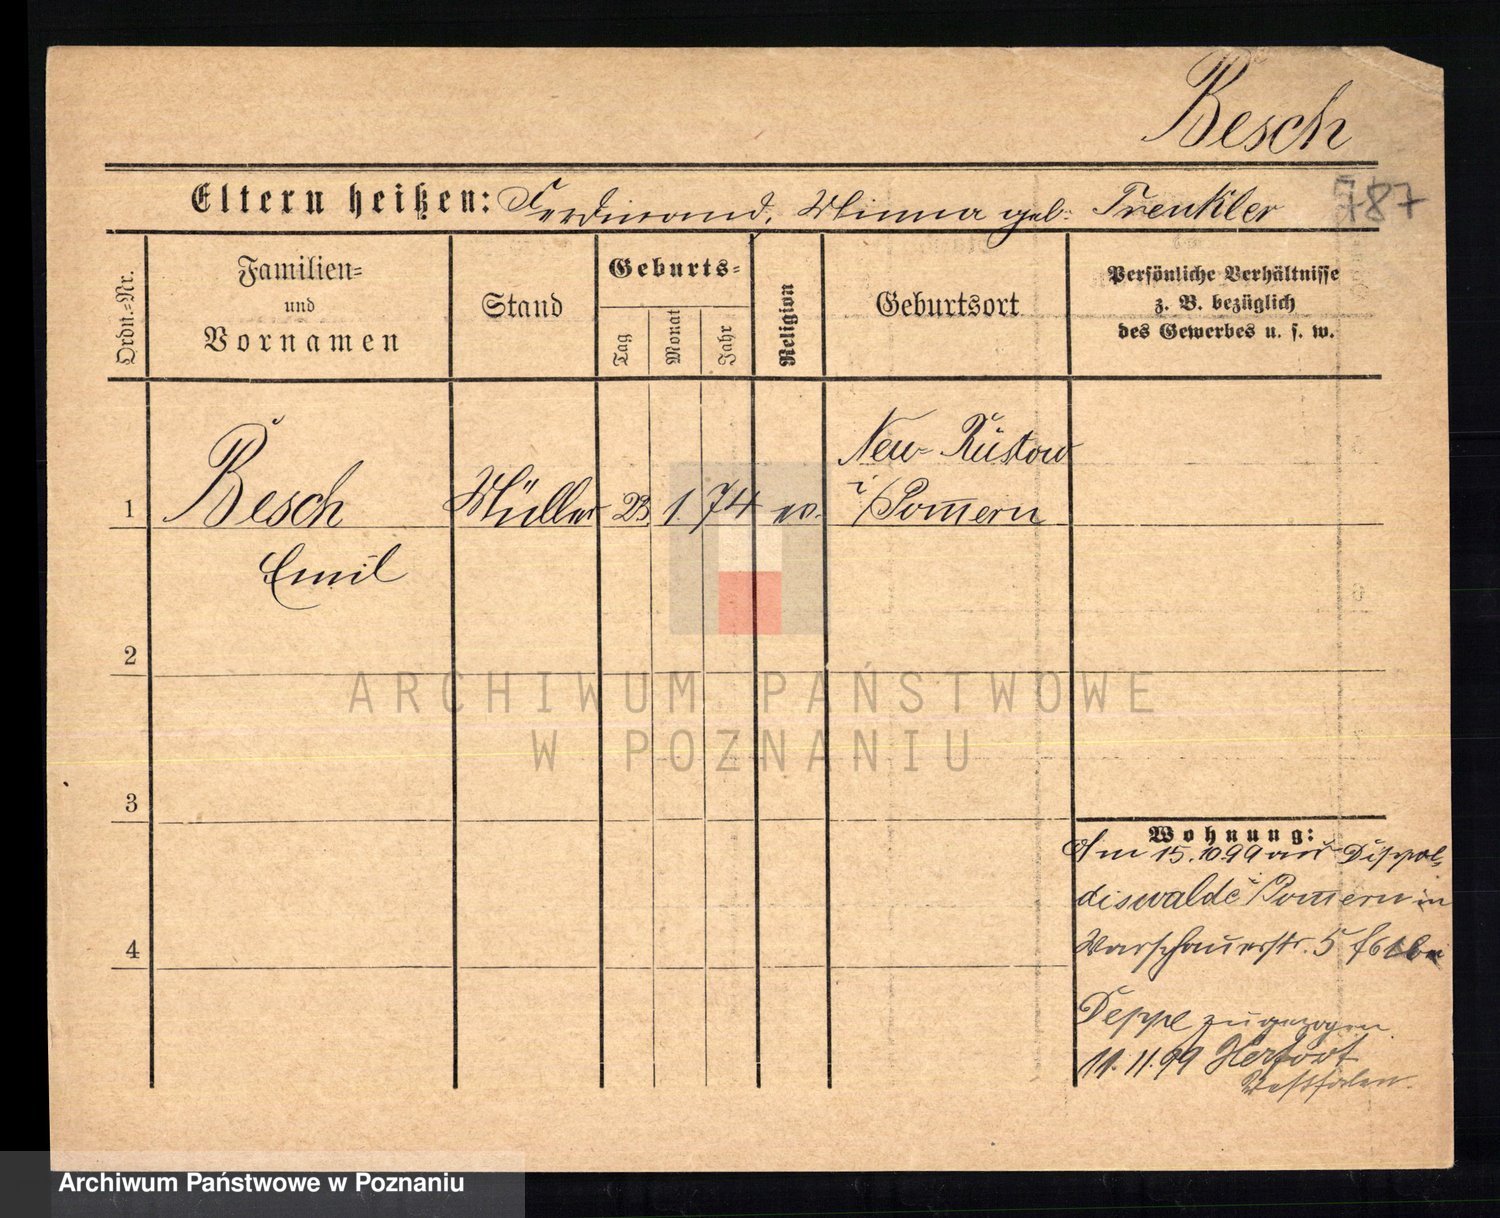 Besch
Eltern heißen: Ferdinand, Minna geb: Trenkler 787
Ordn.=Nr.
Familien=
und
Vornamen
Stand
Geburts=
Tag
Monat
Jahr
Religion
Geburtsort
Persönliche Verhältnisse
z. B. bezüglich
des Gewerbes u. s. w.
1 Besch Müller 23 1. 74 ev. Neu-Rüstow
i/Pom̅ern
Emil
2
3
4
Wohnung:
Am 15.10.99 aus Dippol=
diswalde i/Pom̅ern in
Warschauerstr. 5 bei
Deppe zugezogen
11.11.99 Herfort
Westfalen.
ARCHIWUM PAŃSTWOWE
W POZNANIU
Archiwum Państwowe w Poznaniu